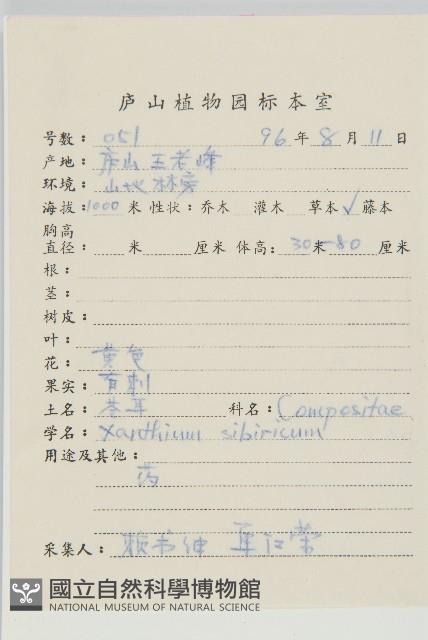 庐山植物园标本室
号数：051 96年8月11日
产地：庐山五老峰
环境：山地林旁
海拔：1000米 性状：乔木 灌木 草本✓藤本
胸高
直径： 米 厘米 体高：30米-80厘米
根：
茎：
树皮：
叶：
花：黄色
果实：有刺
土名：苍耳 科名：Compositae
学名：Xanthium sibiricum
用途及其他：
药
采集人：赖书绅
國立自然科學博物館
NATIONAL MUSEUM OF NATURAL SCIENCE